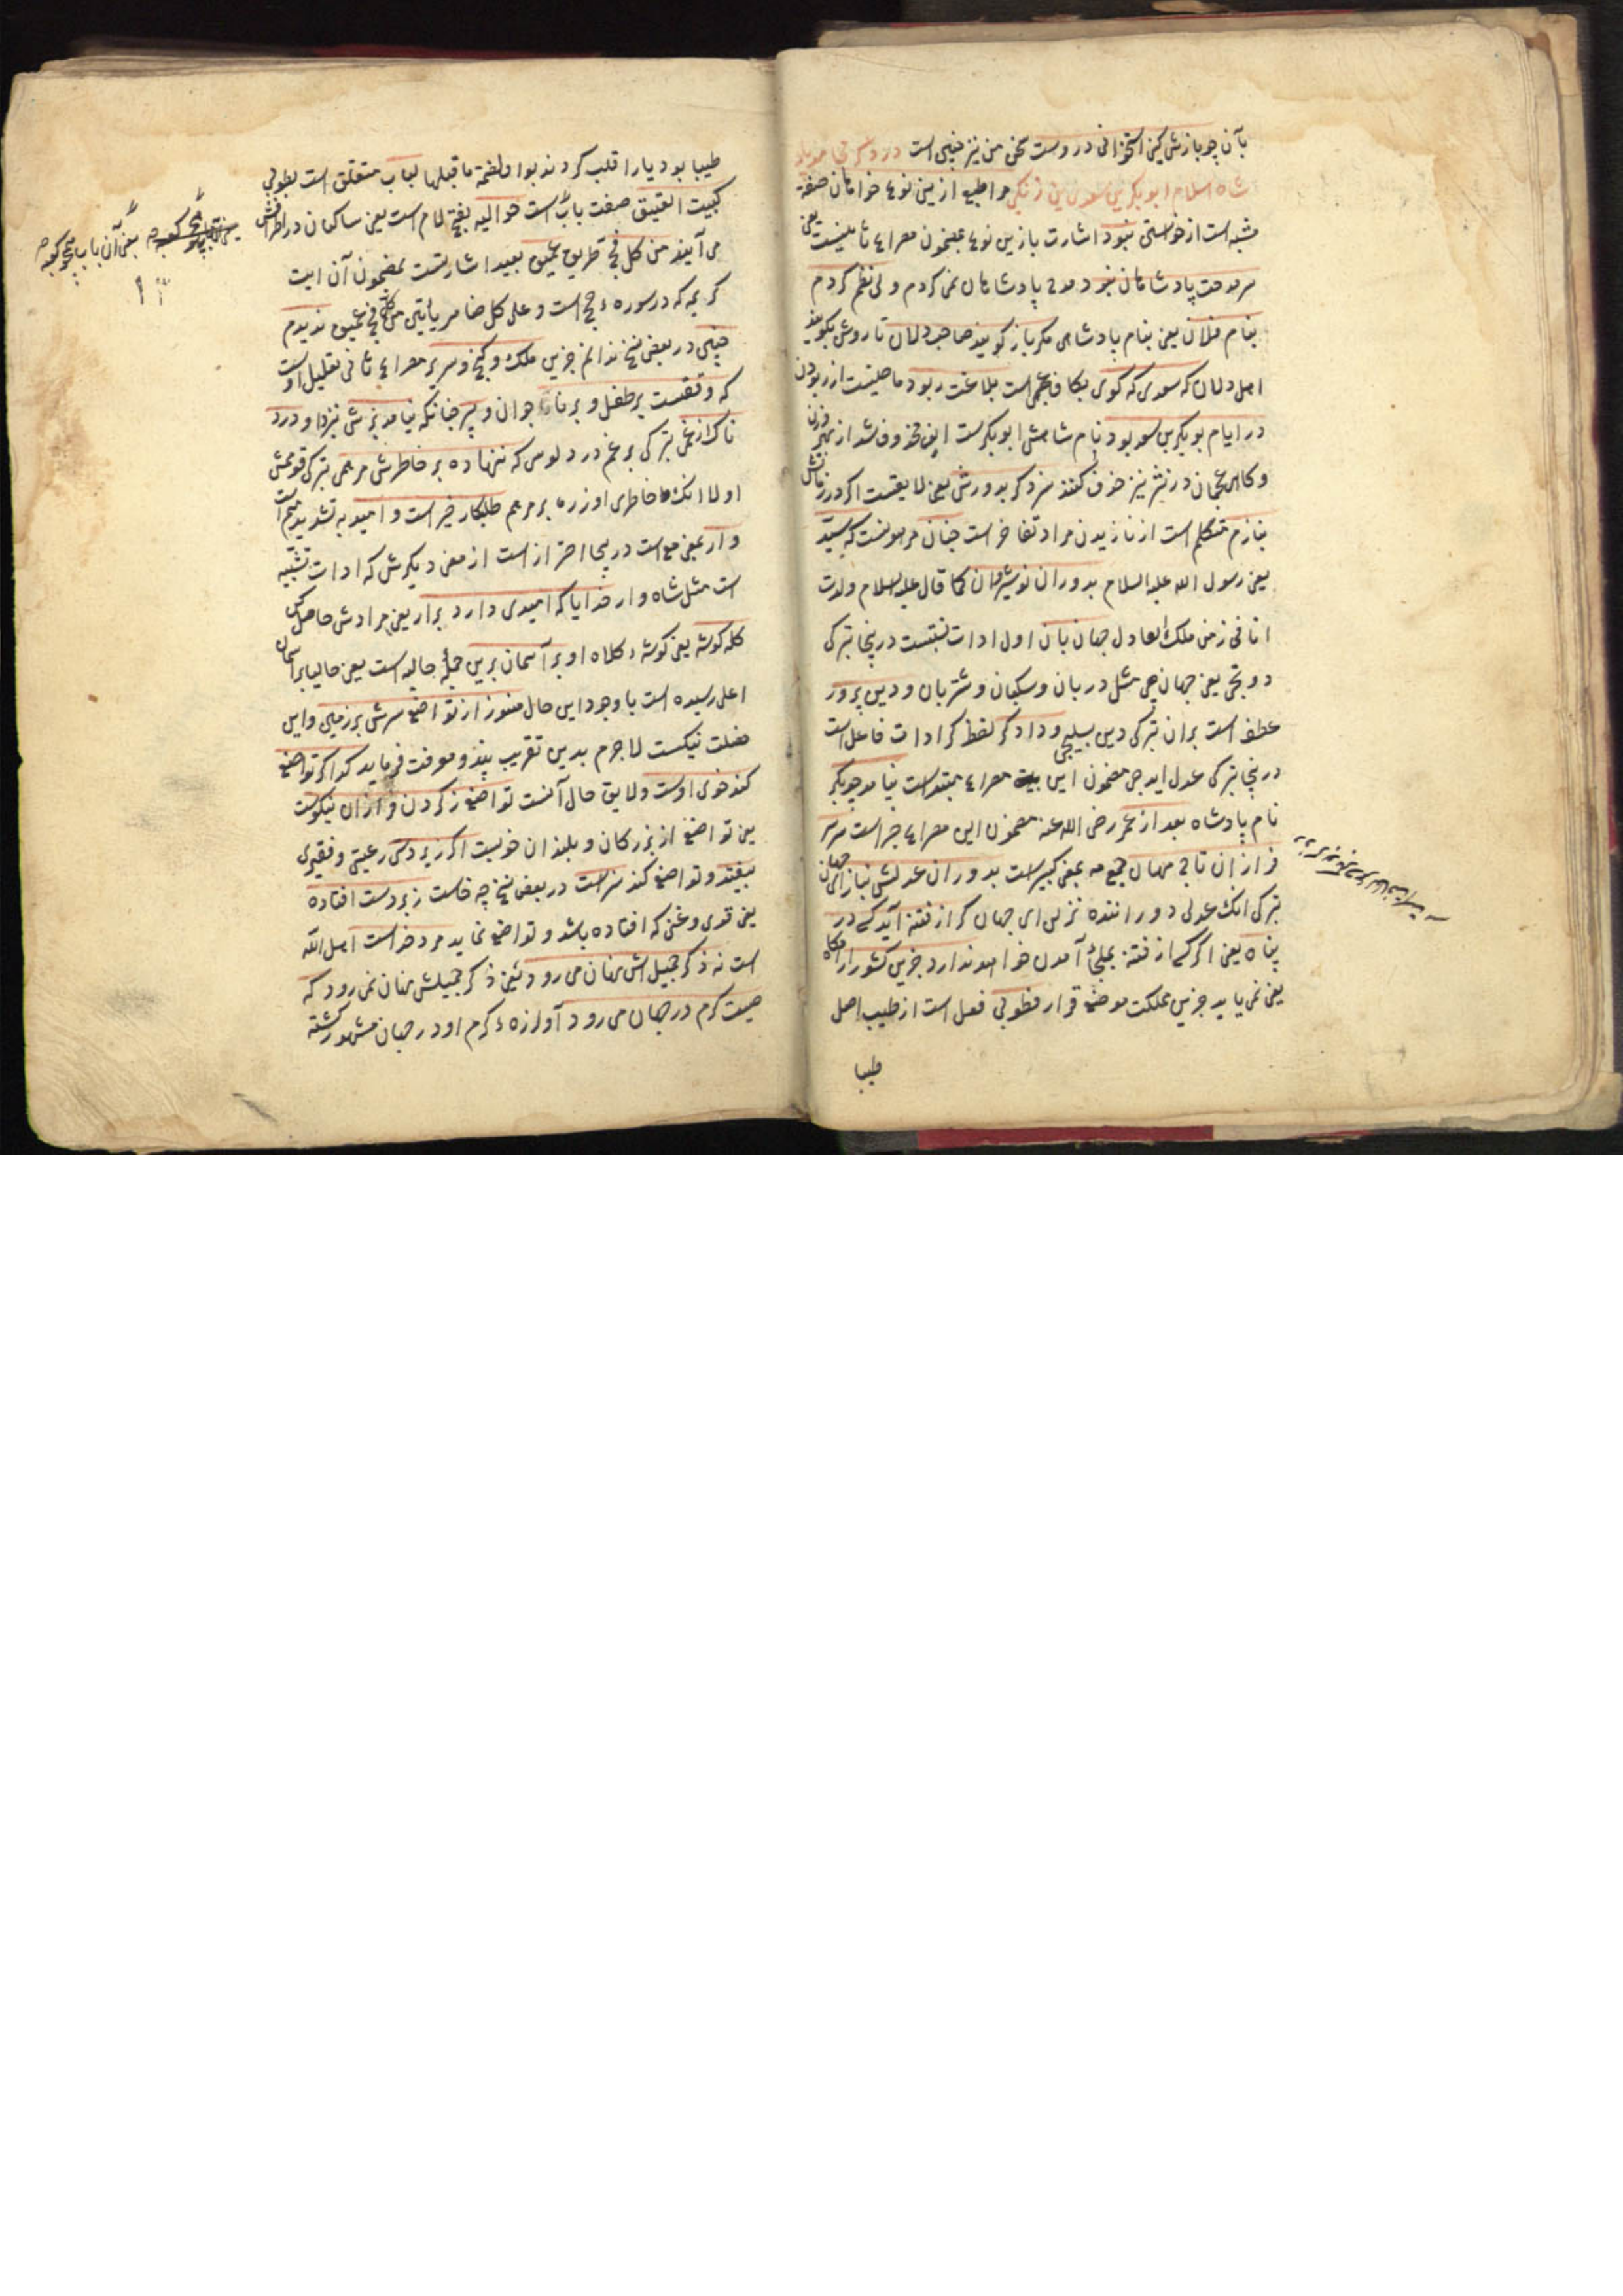 بآن چو بازش کنی استخوانی دروست سخن من نیز چنین است در ذکر
شاه اسلام ابو بکر بن سعد بن زنکی مرا طبع ازین نوع خواهان صفة
مشبه است از خواستن نبود اشارت بازین نوع بمضمون مصراع ثانیست یعنی
سر مدحت پادشاهان نبود مدح پادشاهان نمی کردم ولی نظم کردم
بنام فلان یعنی بنام پادشاهی مکر باز کویند صاحب دلان تا روش بکویند
اهل دلان که سعدی که کوی بکاف عجمی است بلاغت ربود ماضیست از ربودن
در ایام بو بکر بن سعد بود نام شاهش ابو بکرست الف محذوف شد از بهر وزن
و کاهی عجمان در نثر نیز حذف کنند سزد کر بدورش یعنی لایقست اکر در زمانش
بنازم متکلم است از نازیدن مراد تفاخر است چنان مر هونست که سید
یعنی رسول الله علیه السلام بدوران نوشیروان کما قال علیه السلام ولدت
انا فی زمن ملک العادل جهان بان اول ادات نسبتست درینجا بترکی
دوبجی یعنی جهان جی مثل دربان و سکبان و شتربان و دین پرور
عطف است بران بترکی دین بسلیجی و دادکر لفظ کر ادات فاعل است
درینجا بترکی عدل ایدجی مضمون این مصراع مبتداست نیامد چو بوبکر
نام پادشاه بعد از عمر رضی الله عنه مضمون این مصراع خبر است سر
فرازان تاج مهان جمع مه بمعنی کبیر است بدوران عدلش بناز ای جهان
بترکی انک عدلی دوراننده نزلن ای جهان کر از فتنه آید کسی در
پناه یعنی اکر کسی از فتنه بملجأ آمدن خواهد ندارد جزین کشور آرامکاه
یعنی نمی یابد جزین مملکت موضع قرار فطوبی فعل است از طیب اصل
طیبا
طیبا بود یا را قلب کردند بواو لضمة ما قبلها لباب متعلق است بطوبی
کبیت العتیق صفت باب است حوالیه بفتح لام است یعنی ساکنان در اطرافش
می آیند من کل فج طریق عمیق بعید اشارتست بمضمون آن ایت
کریمه که در سوره حج است و علی کل ضامر یأتین من کل فج عمیق ندیدم
چنین در بعض نسخ ندانم جزین ملک و کنج و سریر مصراع ثانی تعلیل اوست
که وقفست بر طفل و برنا جوان و پیر چنانکه نیامد برش نزد او درد
ناک از غمی بترکی بر غم در دلوس که ننهاده بر خاطرش مرهمی بترکی قومش
اولا انک خاطری اوزره بر مرهم طلبکار خیر است و امید به تشدید میم است
وار بمعنی مع است درینجا احتراز است از معنی دیکرش که ادات تشبیه
است مثل شاه وار خدایا که امیدی دارد برار یعنی مرادش حاصل کن
کله کوشه یعنی کوشه کلاه او بر آسمان برین جملۀ حالیه است یعنی حالیا بر آسمان
اعلی رسیده است با وجود این حال هنوز از تواضع سرش بر زمین و این
خصلت نیکست لا جرم بدین تقریب پند و معرفت فرماید کدا کر تواضع
کند خوی اوست و لایق حال آنست تواضع ز کردن فرازان نیکوست
یعنی تواضع از بزرکان و بلندان خوبست اکر زیردستی رعیتی و فقیری
بیفتد و تواضع کند سزاست در بعض نسخ چه خاست زبردست افتاده
یعنی قدری و غنی که افتاده باشد و تواضع نماید مرد خداست اهل الله
است نه ذکر جمیلش نهان می رود یعنی ذکر جمیلش نهان نمی رود که
صیت کرم در جهان می رود آوازه کرم او در جهان مشهور کشته
بمعنی آن باب همچو کعبه